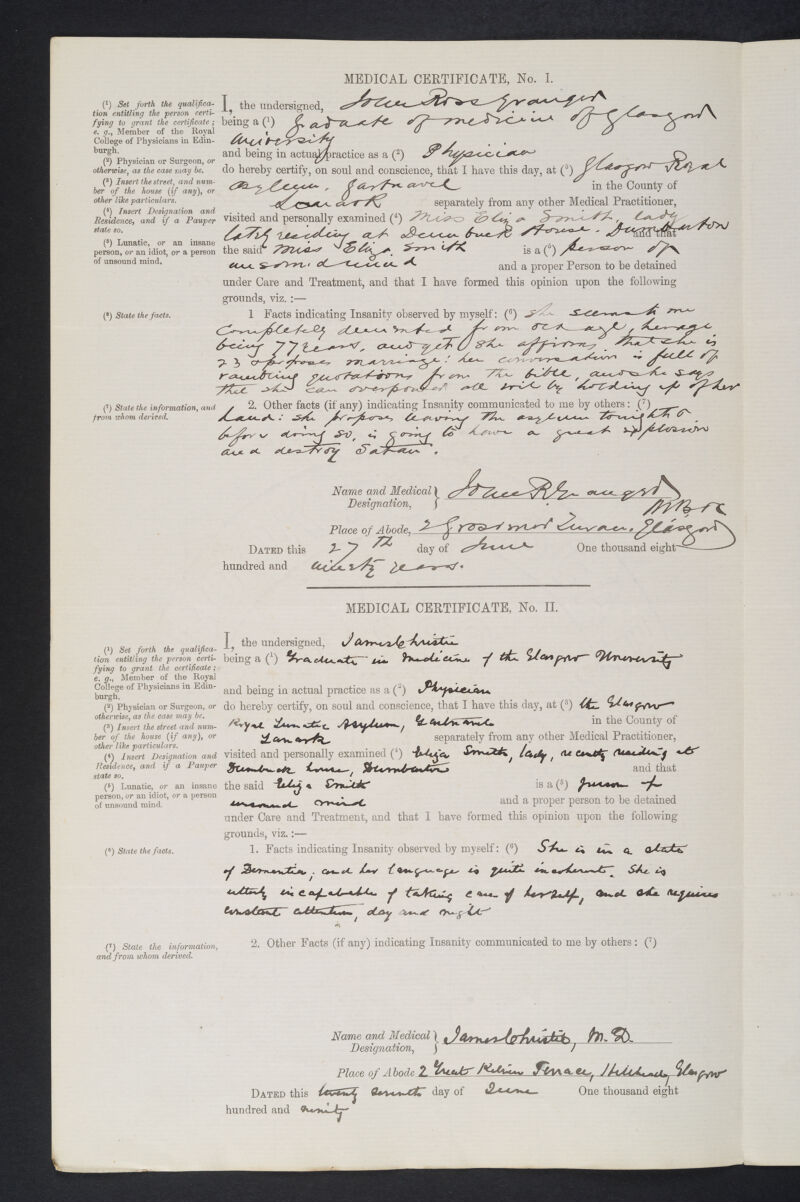 MEDICAL CERTIFICATE, No. I.
(1) Set forth the qualifica-
tion entitling the person certi-
fying to grant the certificate;
e. g., Member of the Royal
College of Physicians in Edin-
burgh.
(2) Physician or Surgeon, or
otherwise, as the case may be.
(3) Insert the street, and num-
ber of the house (if any), or
other like particulars.
(4) Insert Designation and
Residence, and if a Pauper
state so.
(5) Lunatic, or an insane
person, or an idiot, or a person
of unsound mind.
I, the undersigned, John Ross Granger
being a (1) Graduate of medicine of Glasgow
University
and being in actual practice as a (2) Physician
do hereby certify, on soul and conscience, that I have this day, at (3) Glasgow Royal
Asylum. Gartnavel in the County of
Lanark separately from any other Medical Practitioner,
visited and personally examined (4) Miss Eliza Smith, lady
lately residing at Dumbuck House. Dumbarton and that
the said Miss Eliza Smith is a (5) person of
unsound mind and a proper Person to be detained
under Care and Treatment, and that I have formed this opinion upon the following
grounds, viz. :—
(6) State the facts.
1 Facts indicating Insanity observed by myself: (6) she seems to me
completely demented from old age, her age
being 77 years, and yet she affirms that she is
23 & proposes marriage: her conversation is full of
rambling quotations from the bible, and she says
that she can overpower all evil by holding up of her
(7) State the information, and
from whom derived.
2. Other facts (if any) indicating Insanity communicated to me by others: (7)
hand: she proposes leaving the asylum tonight &
before doing so, is going to have a great explosion
and destroy Satan.
Name and Medical
Designation,
John R Granger
Place of Abode, 2 Grosvenor Glasgow
DATED this 27th day of June One thousand eight
hundred and ninety years.
MEDICAL CERTIFICATE, No. II.
(1) Set forth the qualifica-
tion entitling the person certi-
fying to grant the certificate;
e. g., Member of the Royal
College of Physicians in Edin-
burgh.
(2) Physician or Surgeon, or
otherwise, as the case may be.
(3) Insert the street and num-
ber of the house (if any), or
other like particulars.
(4) Insert Designation and
Residence, and if a Pauper
state so.
(5) Lunatic, or an insane
person, or an idiot, or a person
of unsound mind.
I, the undersigned, James Christie
being a (1) Graduate in Medicine of the Glasgow University
and being in actual practice as a (2) Physician
do hereby certify, on soul and conscience, that I have this day, at (3) the Glasgow
Royal Lunatic Asylum, Gartnavel in the County of
Lanark separately from any other Medical Practitioner,
visited and personally examined (4) Eliza Smith, lady, recently residing at
Dumbuck house, Dumbarton and that
the said Eliza Smith is a (5) person of
unsound mind and a proper person to be detained
under Care and Treatment, and that I have formed this opinion upon the following
grounds, viz. :—
(6) State the facts.
1. Facts indicating Insanity observed by myself: (6) She is in a state
of Dementia; and her language is quite incoherent. She is
utterly incapabable of taking care of herself, and she requires
constant attention, day and night
(7) State the information,
and from whom derived.
2. Other Facts (if any) indicating Insanity communicated to me by others: (7)
Name and Medical
Designation,
James Christie, M. D.
Place of Abode 2 Great Kelvin Terrace, Hillhead, Glasgow
DATED this twenty seventh day of June One thousand eight
hundred and ninity